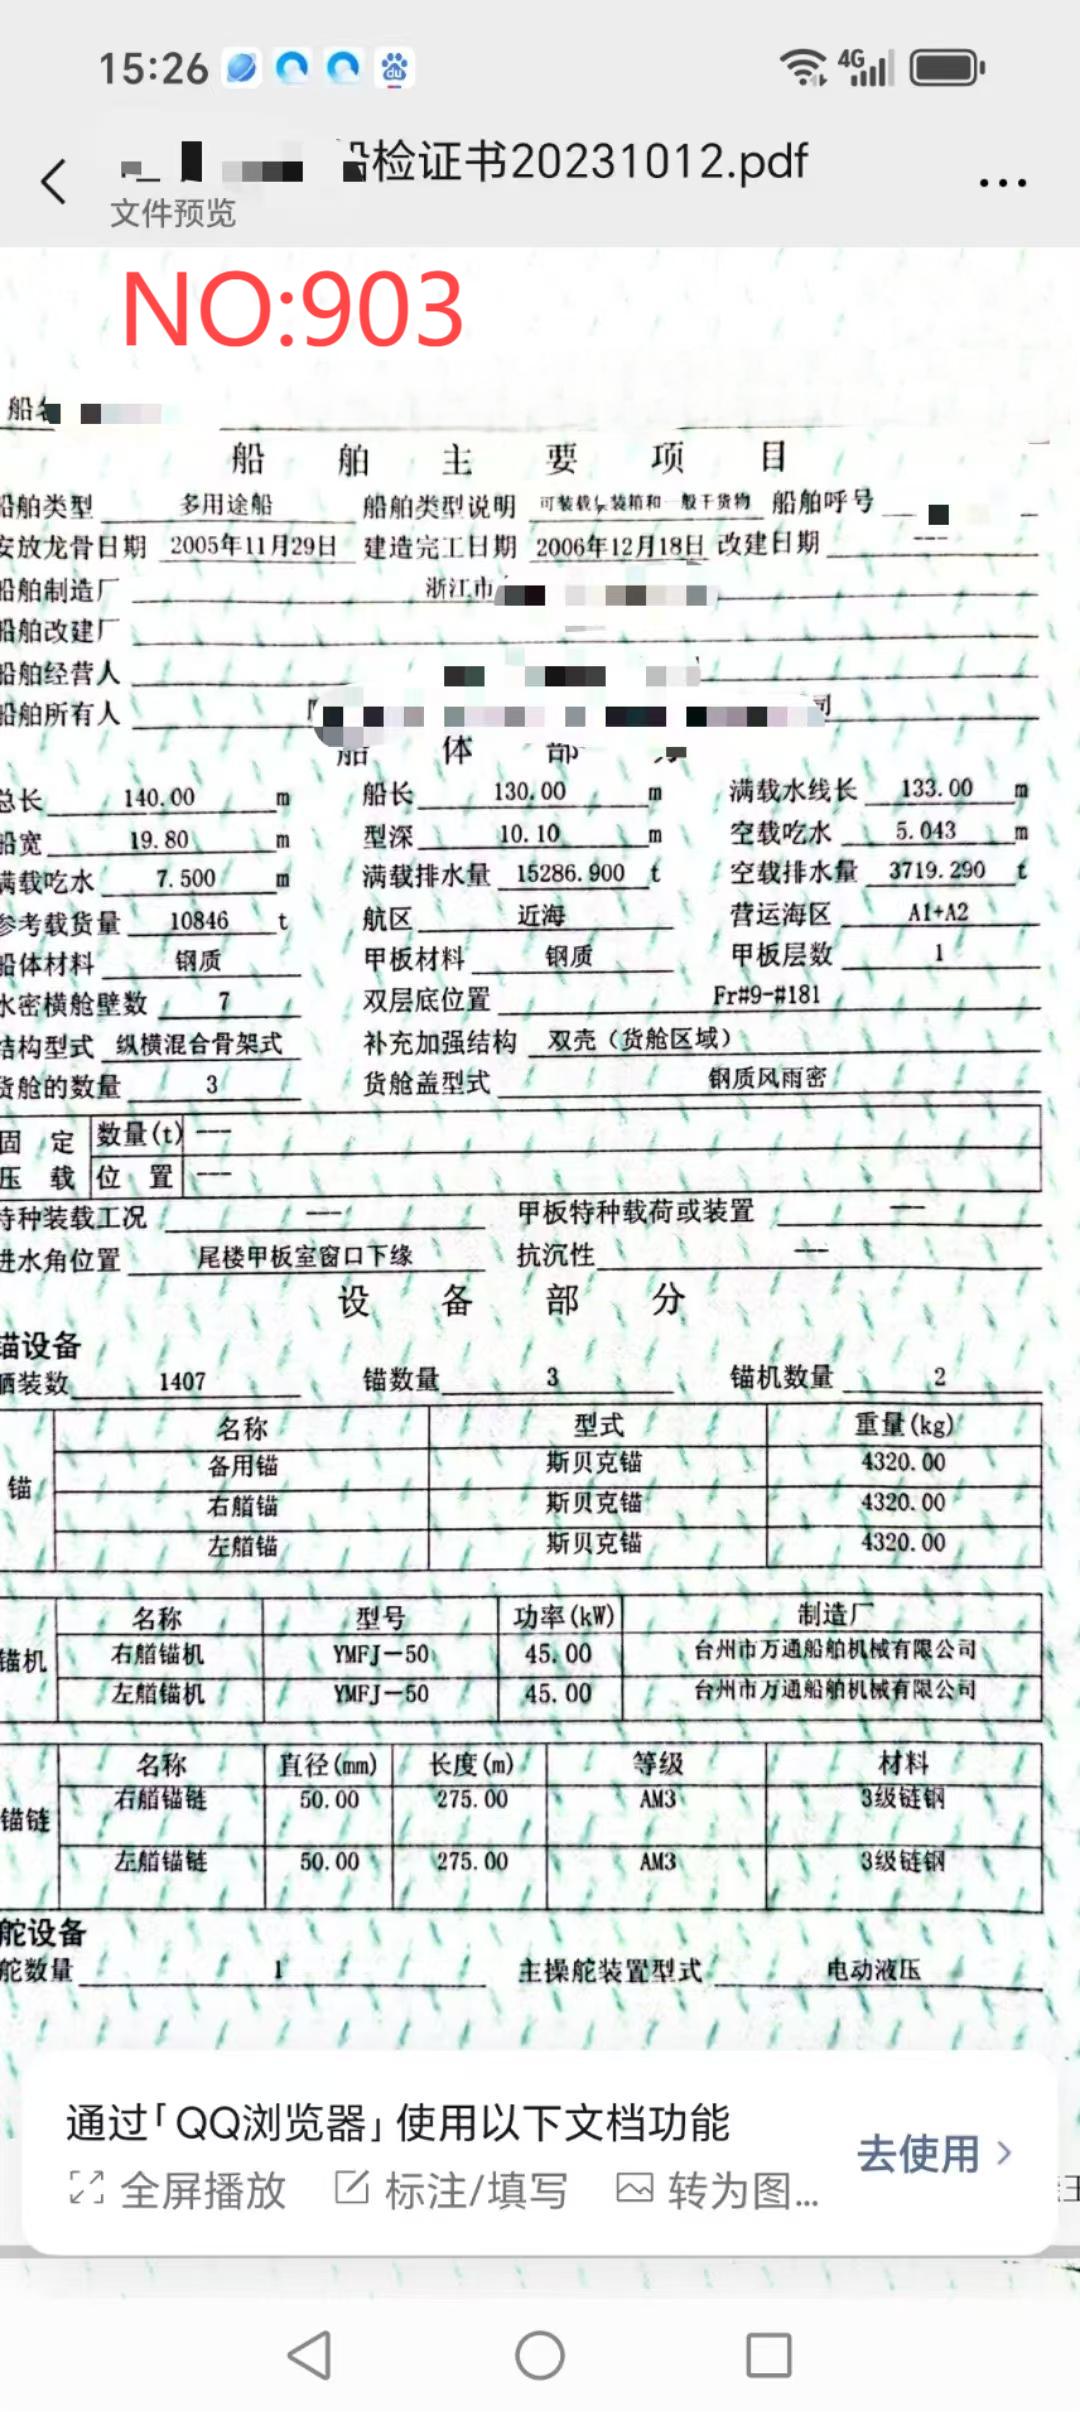 15:26 4G
检证书20231012.pdf
文件预览
NO:903
船名
船 舶 主 要 项 目
船舶类型 多用途船 船舶类型说明 可装载集装箱和一般干货物 船舶呼号
安放龙骨日期 2005年11月29日 建造完工日期 2006年12月18日 改建日期 ---
船舶制造厂 浙江市
船舶改建厂
船舶经营人
船舶所有人 司
船 体 部
总长 140.00 m 船长 130.00 m 满载水线长 133.00 m
船宽 19.80 m 型深 10.10 m 空载吃水 5.043 m
满载吃水 7.500 m 满载排水量 15286.900 t 空载排水量 3719.290 t
参考载货量 10846 t 航区 近海 营运海区 A1+A2
船体材料 钢质 甲板材料 钢质 甲板层数 1
水密横舱壁数 7 双层底位置 Fr#9-#181
结构型式 纵横混合骨架式 补充加强结构 双壳（货舱区域）
货舱的数量 3 货舱盖型式 钢质风雨密
固 定 数量(t) ---
压 载 位 置 ---
特种装载工况 --- 甲板特种载荷或装置 ---
进水角位置 尾楼甲板室窗口下缘 抗沉性 ---
设 备 部 分
锚设备
舾装数 1407 锚数量 3 锚机数量 2
名称 型式 重量(kg)
锚 备用锚 斯贝克锚 4320.00
右艏锚 斯贝克锚 4320.00
左艏锚 斯贝克锚 4320.00
名称 型号 功率(kW) 制造厂
锚机 右艏锚机 YMFJ-50 45.00 台州市万通船舶机械有限公司
左艏锚机 YMFJ-50 45.00 台州市万通船舶机械有限公司
名称 直径(mm) 长度(m) 等级 材料
锚链 右艏锚链 50.00 275.00 AM3 3级链钢
左艏锚链 50.00 275.00 AM3 3级链钢
舵设备
舵数量 1 主操舵装置型式 电动液压
通过「QQ浏览器」使用以下文档功能
去使用
全屏播放 标注/填写 转为图...